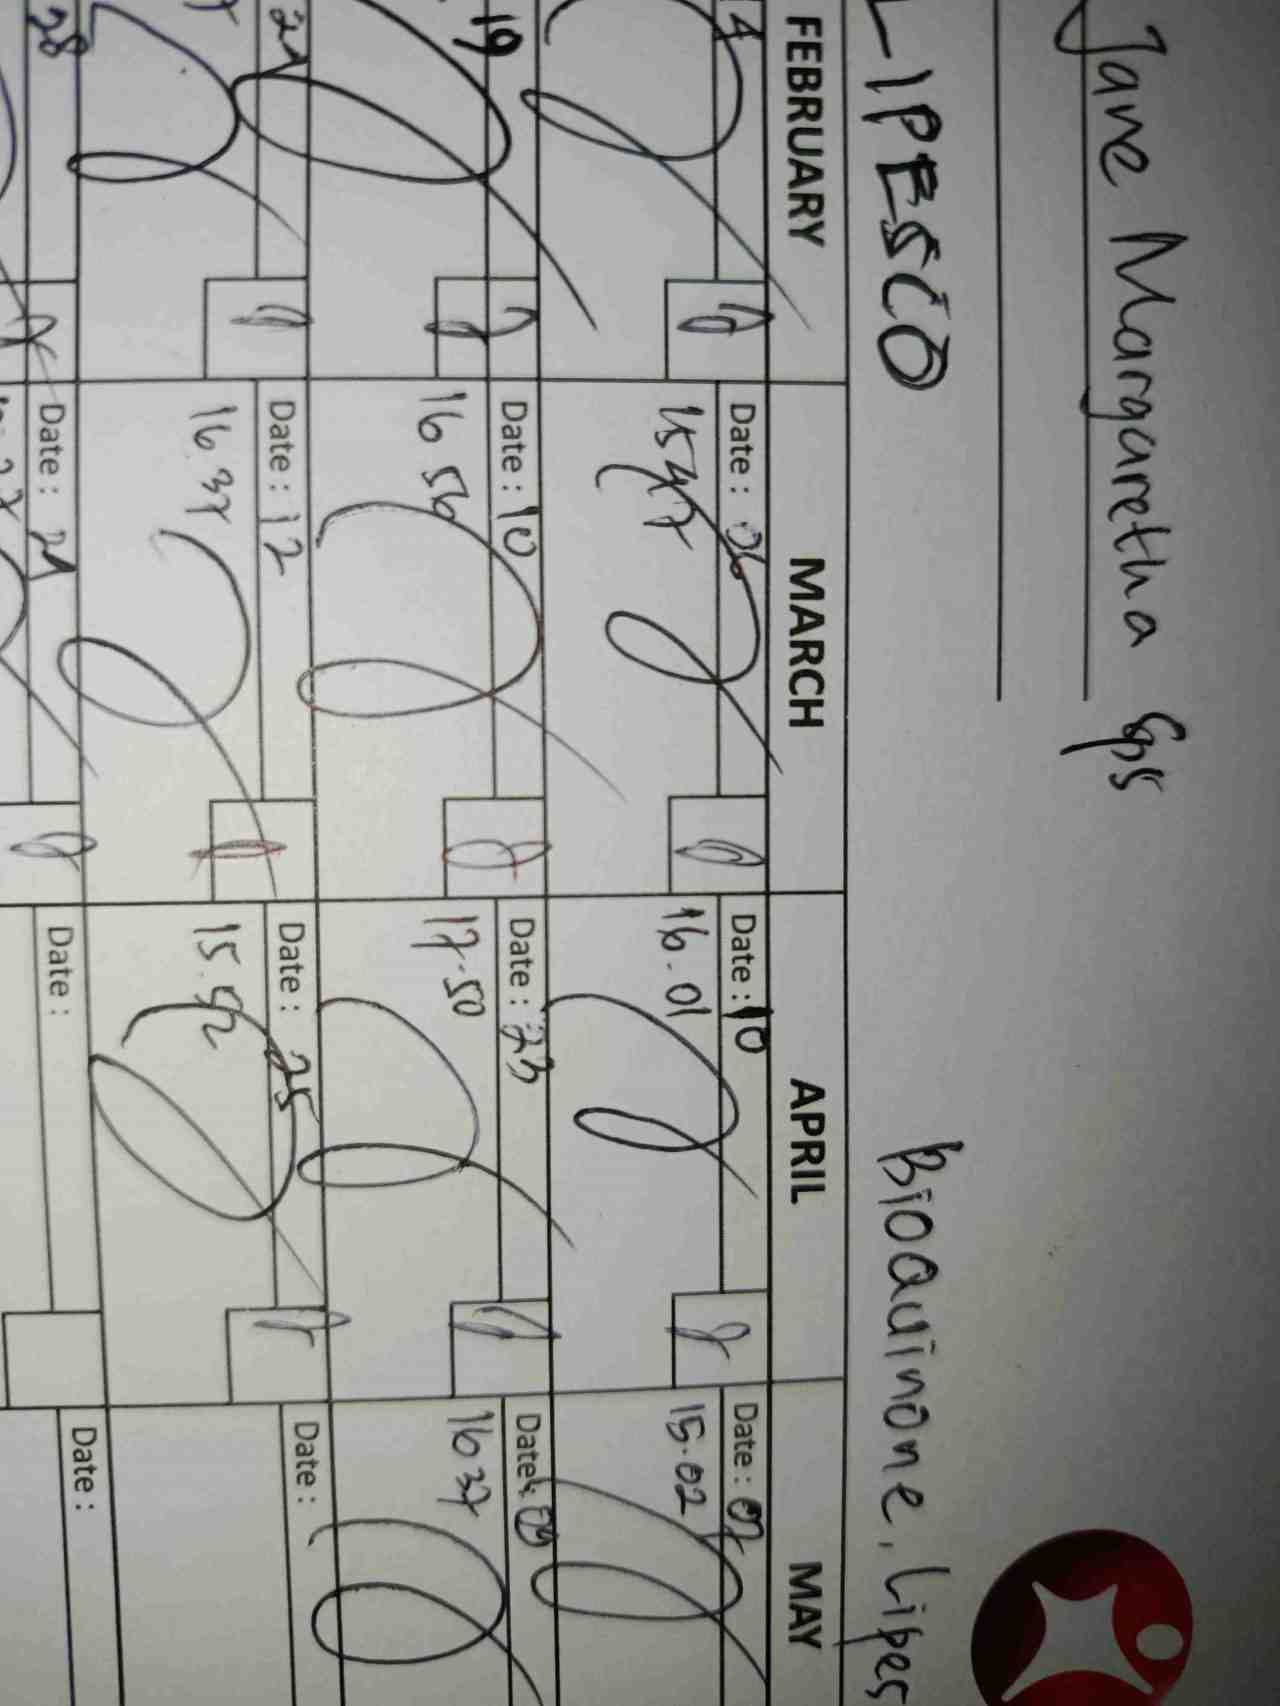 Jane Margaretha
LIPESCO Bioquinone, Lipes
FEBRUARY MARCH APRIL MAY
14 Date: 06 Date: 10 Date: 07
15 47 16.01 15.02
19 Date: 10 Date: 23 Date: 09
16 56 17.50 16 37
21 Date: 12 Date: 25 Date:
16 37 15.52
28 Date: 21 Date: Date: